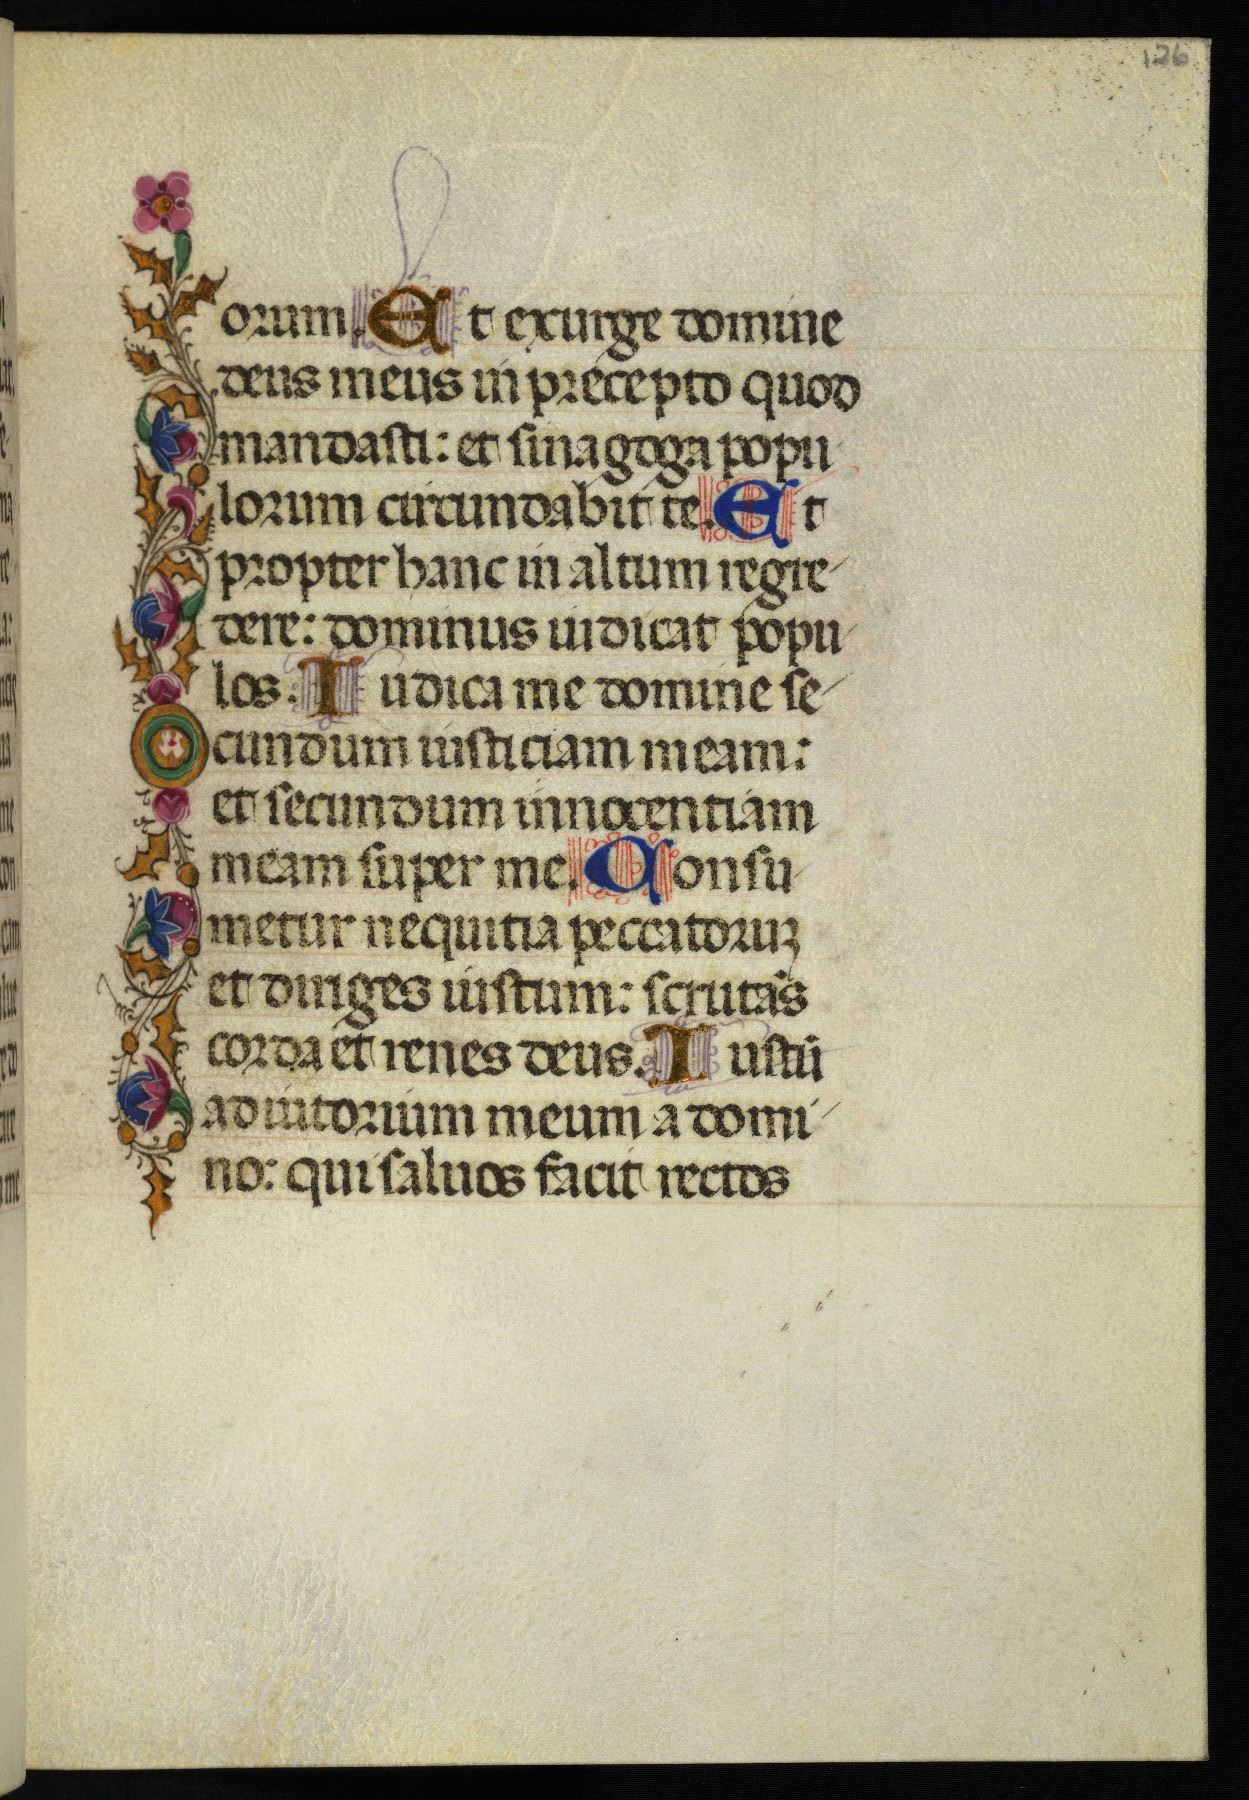 126
orum. Et exurge domine
deus meus in precepto quod
mandasti: et sinagoga popu
lorum circundabit te. Et
propter hanc in altum regre-
dere: dominus iudicat popu-
los. Iudica me domine se-
cundum iusticiam meam:
et secundum innocentiam
meam super me. Consu
metur nequitia peccatoruʒ
et diriges iustum: scrutās
corda et renes deus. Iustū
adiutorium meum a domi-
no: qui saluos facit rectos